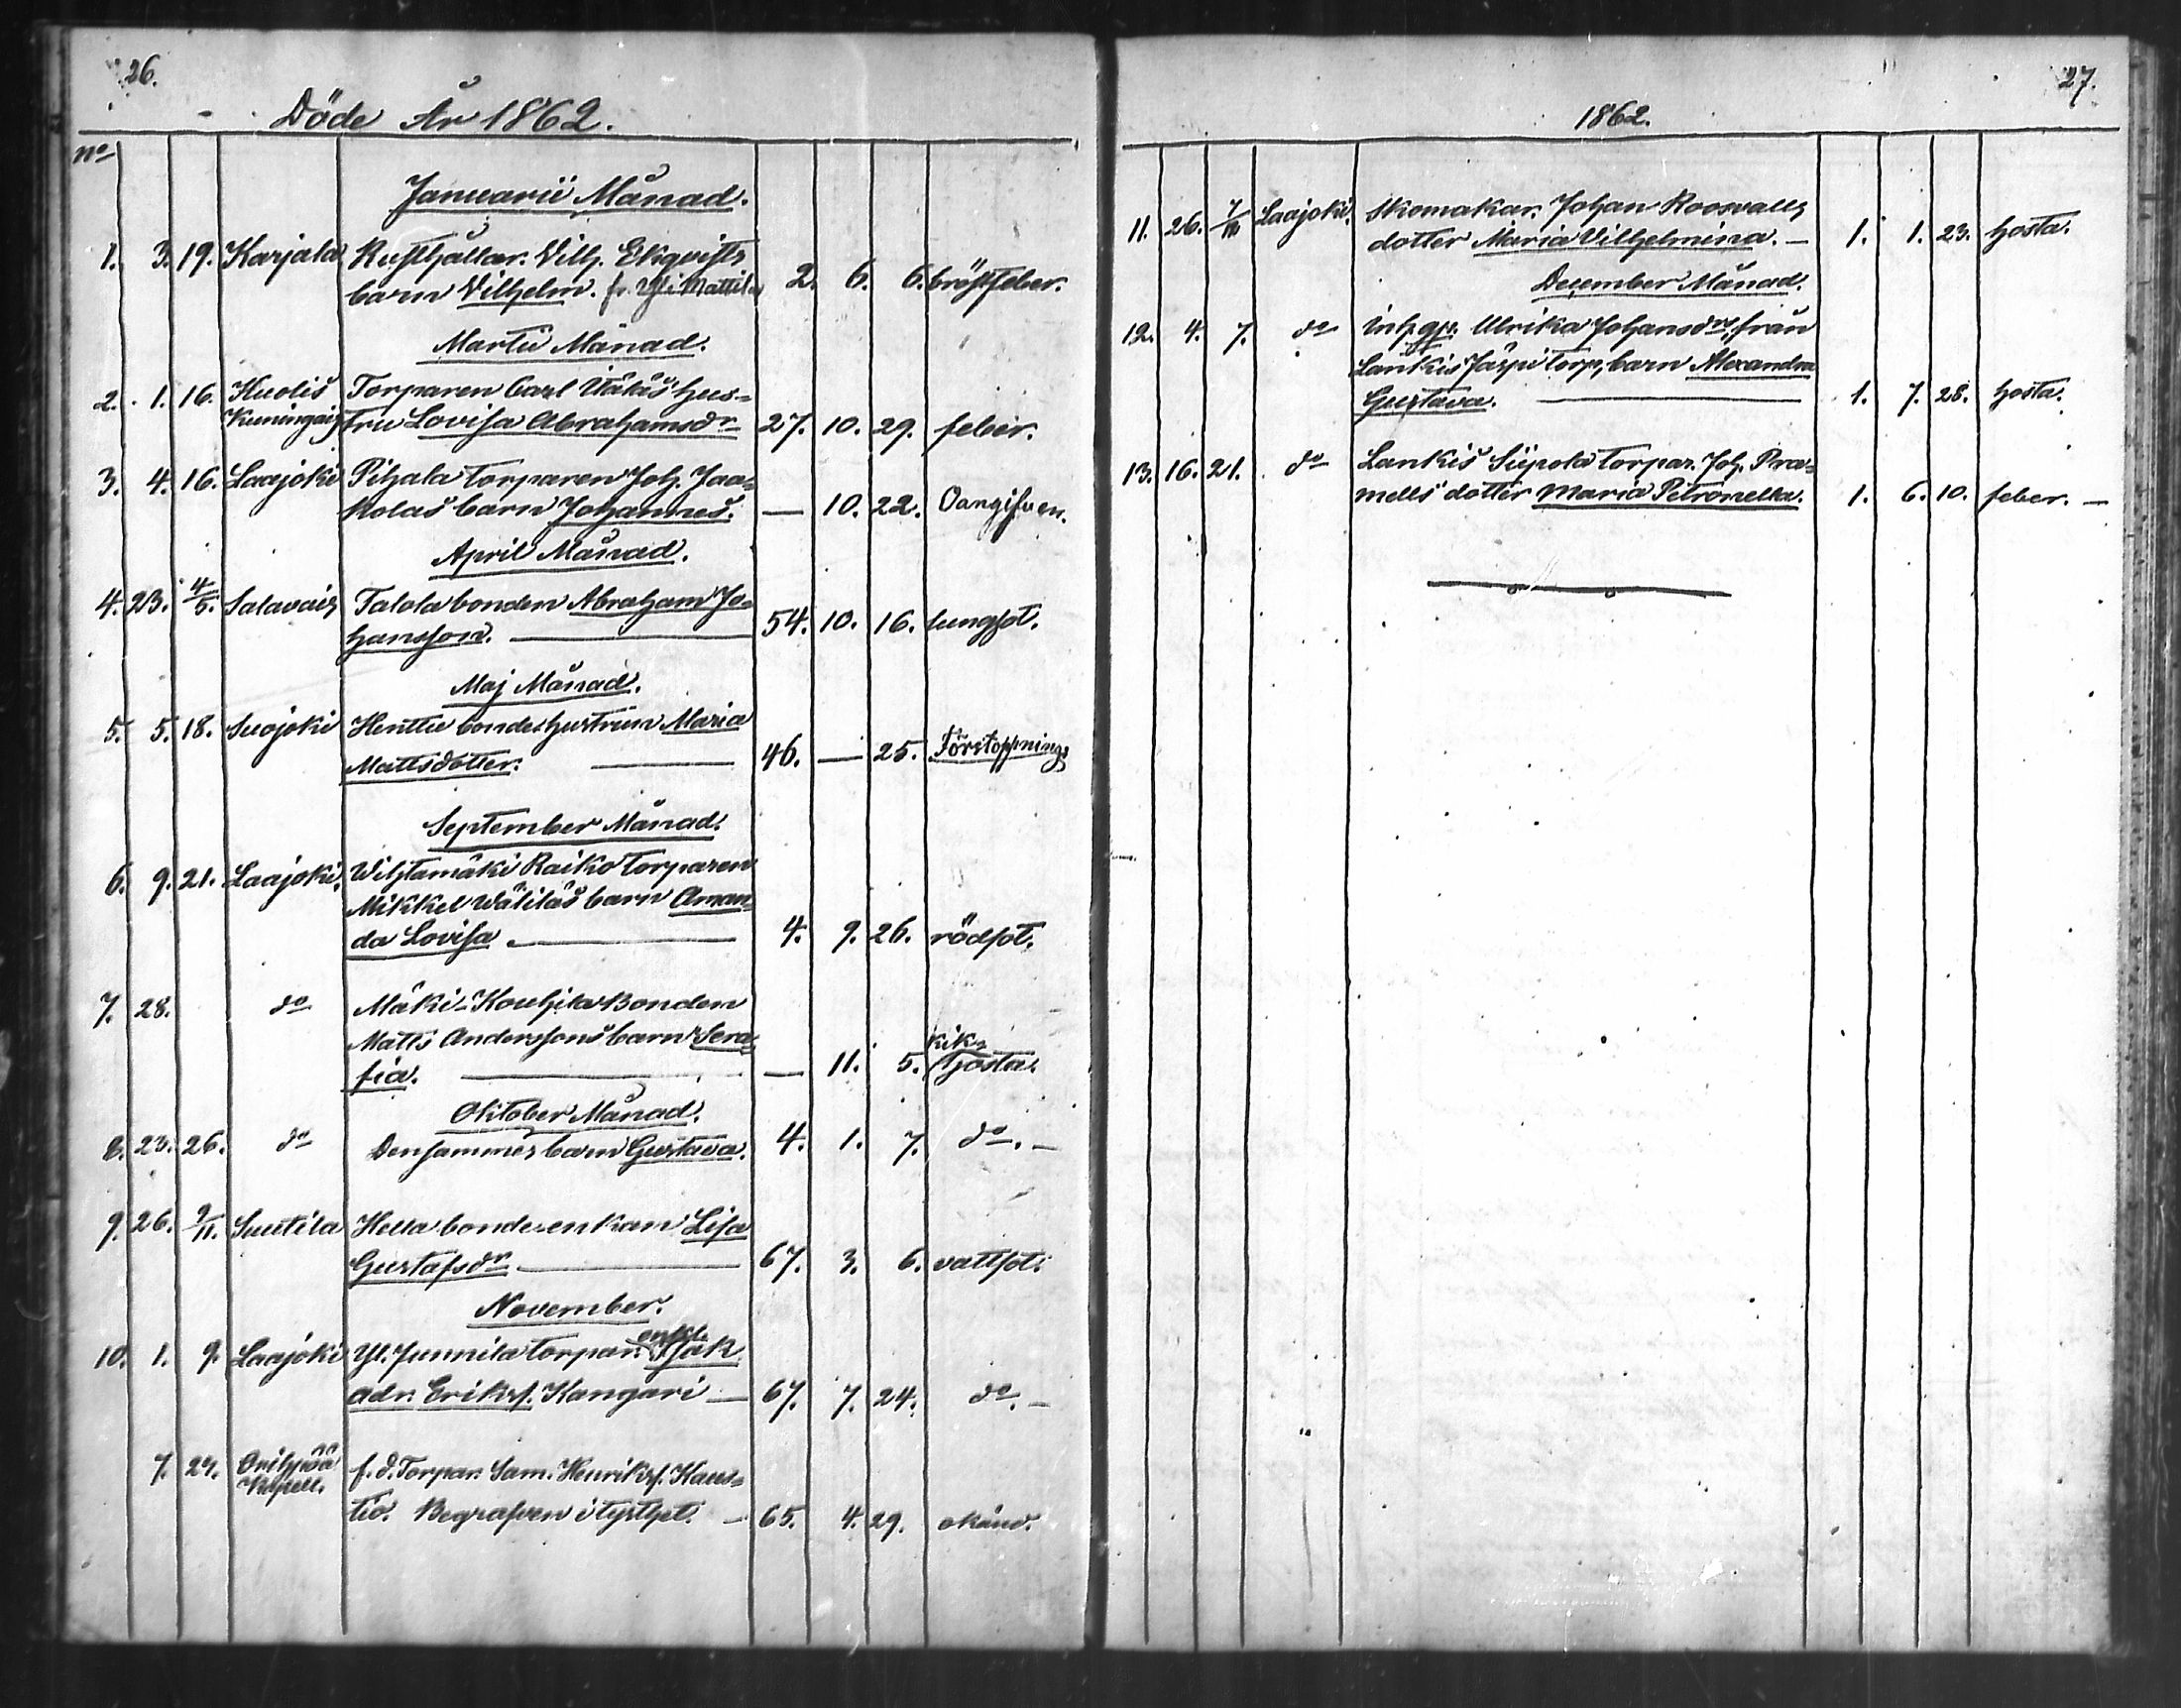 26.
Döde År 1862.
No
Januarii Månad.
1. 3. 19. Karjala Rusthållar. Vilh. Ekqvists
barn Vilhelm. fr. Yli Mattila 2. 6. 6. bröstfeber.
Martii Månad.
2. 1. 16. Kuolis Torparen Carl Utäläs hus-
Kuningais tru Lovisa Abrahamsdr 27. 10. 29. feber.
3. 4. 16. Laajoki Pihala torparen Joh. Jaa-
kolas barn Johannes. — 10. 22. Oangifven.
April Månad.
4. 23. 4/5. Salavais Talola bonden Abraham Jo-
hansson. — 54. 10. 16. lungsot.
Maj Månad.
5. 5. 18. Suojoki Henttu bondehustrun Maria
Mattsdotter. — 46. — 25. Förstoppning
September Månad.
6. 9. 21. Laajoki. Wihtamäki Raiko torparen
Mikkel Wäliläs barn Aman-
da Lovisa. — 4. 9. 26. rödsot.
7. 28. do Mäki-Kouhila Bonden
Matts Anderssons barn Sera-
fia. — — 11. 5. kik-
hosta.
Oktober Månad.
8. 23. 26. do Densammes barn Gustava. 4. 1. 7. do. —
9. 26. 9/11. Suutila Hella bonde-enkan Lisa
Gustafsdr — 67. 3. 6. vattsot.
November.
10. 1. 9. Laajoki Yl. Junnila torpar. enkl. Isak
adr. Eriksf. Kangari — 67. 7. 24. do. —
7. 27. Oripää f. d. Torpar. Sam. Henriksf. Kaus-
Kapell. tio. Begrafven i tysthet. — 65. 4. 29. okänd.
27.
1862.
11. 26. 7/12 Laajoki. Skomakar. Johan Roosvalls
dotter Maria Vilhelmina. — 1. 1. 23. hosta.
December Månad.
12. 4. 7. do inhgp. Ulrika Johansdrs, från
Lankis Järpi torp, barn Alexandra
Gustava. — 1. 7. 28. hosta.
13. 16. 21. do Lankis Siipola torpar. Joh. Pra-
mells dotter Maria Petronella. 1. 6. 10. feber. —